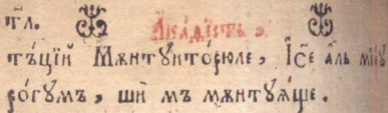 тл. Акаѳістъ,
тъцїй Мѫнтꙋитѻ́рюле, І҆с҃е а҆ль мїеꙋ
ро́гꙋмъ, шѝ мъ мѫнтꙋѧ́ще.